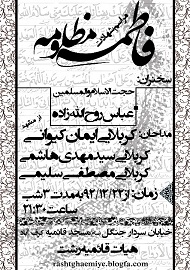 مراسم شهادت
فاطمه مظلومه
سخنران:
حجت الاسلام والمسلمین
عباس روح الله زاده
از مشهد
مداحان: کربلایی ایمان کیوانی
کربلایی سید مهدی هاشمی
کربلایی مصطفی سلیمی
زمان: از ۹۳/۱۲/۲۳ بمدت ۳ شب
ساعت: ۲۱:۳۰
خیابان سردار جنگل
مسجد قائمیه
هیات قائمیه رشت
rashtghaemiye.blogfa.com